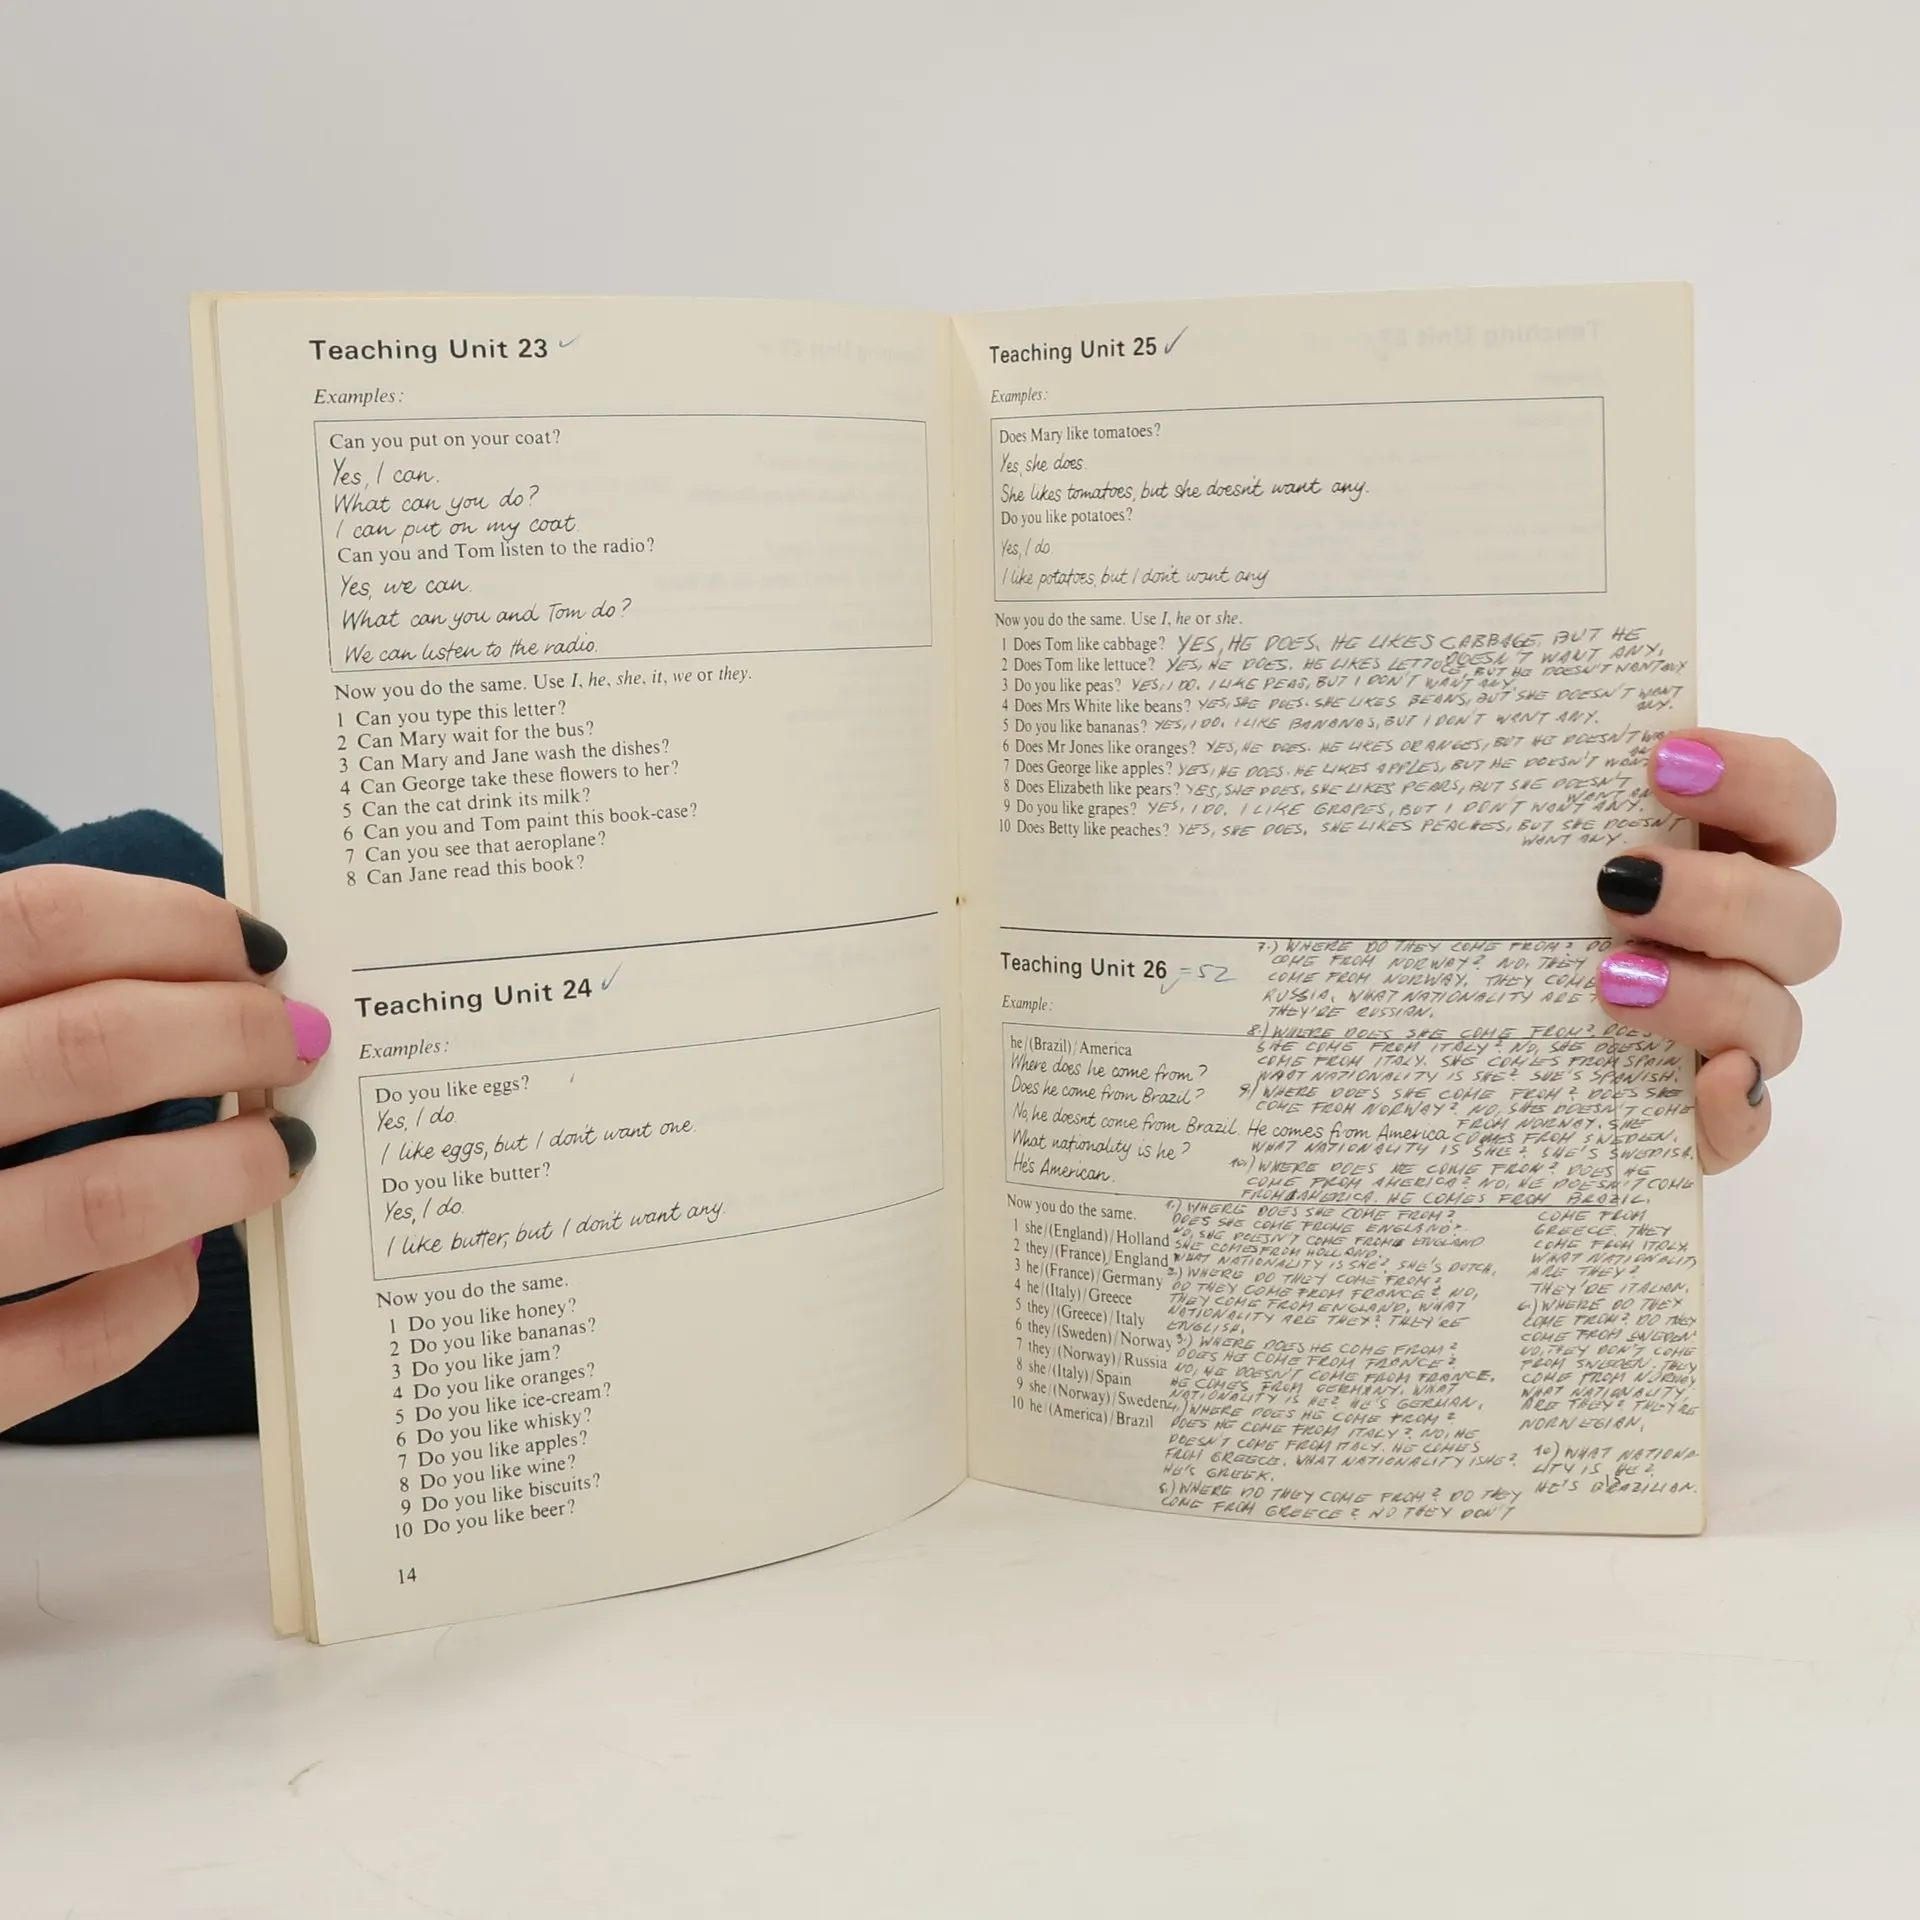 Teaching Unit 23
Examples:
Can you put on your coat?
Yes, I can.
What can you do?
I can put on my coat.
Can you and Tom listen to the radio?
Yes, we can.
What can you and Tom do?
We can listen to the radio.
Now you do the same. Use I, he, she, it, we or they.
1 Can you type this letter?
2 Can Mary wait for the bus?
3 Can Mary and Jane wash the dishes?
4 Can George take these flowers to her?
5 Can the cat drink its milk?
6 Can you and Tom paint this book-case?
7 Can you see that aeroplane?
8 Can Jane read this book?
Teaching Unit 24
Examples:
Do you like eggs?
Yes, I do.
I like eggs, but I don't want one.
Do you like butter?
Yes, I do.
I like butter, but I don't want any.
Now you do the same.
1 Do you like honey?
2 Do you like bananas?
3 Do you like jam?
4 Do you like oranges?
5 Do you like ice-cream?
6 Do you like whisky?
7 Do you like apples?
8 Do you like wine?
9 Do you like biscuits?
10 Do you like beer?
14
Teaching Unit 25
Examples:
Does Mary like tomatoes?
Yes, she does.
She likes tomatoes, but she doesn't want any.
Do you like potatoes?
Yes, I do.
I like potatoes, but I don't want any
Now you do the same. Use I, he or she.
1 Does Tom like cabbage? YES, HE DOES. HE LIKES CABBAGE, BUT HE
DOESN'T WANT ANY.
2 Does Tom like lettuce? YES, HE DOES. HE LIKES LETTUCE, BUT HE DOESN'T WANT ANY
3 Do you like peas? YES, I DO. I LIKE PEAS, BUT I DON'T WANT ANY
4 Does Mrs White like beans? YES, SHE DOES. SHE LIKES BEANS, BUT SHE DOESN'T WANT
ANY.
5 Do you like bananas? YES, I DO. I LIKE BANANAS, BUT I DON'T WANT ANY.
6 Does Mr Jones like oranges? YES, HE DOES. HE LIKES ORANGES, BUT HE DOESN'T
7 Does George like apples? YES, HE DOES. HE LIKES APPLES, BUT HE DOESN'T
8 Does Elizabeth like pears? YES, SHE DOES, SHE LIKES PEARS, BUT SHE DOESN'T
WANT
9 Do you like grapes? YES, I DO. I LIKE GRAPES, BUT I DON'T WANT ANY.
10 Does Betty like peaches? YES, SHE DOES. SHE LIKES PEACHES, BUT SHE DOESN'T
WANT ANY.
Teaching Unit 26 = 52
Example:
he/(Brazil)/America
Where does he come from?
Does he come from Brazil?
No, he doesn't come from Brazil. He comes from America
What nationality is he?
He's American.
7.) WHERE DO THEY COME FROM? DO
COME FROM NORWAY? NO, THEY
COME FROM NORWAY. THEY COME
RUSSIA. WHAT NATIONALITY ARE
THEY'RE RUSSIAN.
8.) WHERE DOES SHE COME FROM? DOES
SHE COME FROM ITALY? NO, SHE DOESN'T
COME FROM ITALY. SHE COMES FROM SPAIN.
WHAT NATIONALITY IS SHE? SHE'S SPANISH.
9.) WHERE DOES SHE COME FROM? DOES SHE
COME FROM NORWAY? NO, SHE DOESN'T COME
FROM NORWAY. SHE
COMES FROM SWEDEN.
WHAT NATIONALITY IS SHE? SHE'S SWEDISH.
10.) WHERE DOES HE COME FROM? DOES HE
COME FROM AMERICA? NO, HE DOESN'T COME
FROM AMERICA. HE COMES FROM BRAZIL.
Now you do the same.
1 she/(England)/Holland
2 they/(France)/England
3 he/(France)/Germany
4 he/(Italy)/Greece
5 they/(Greece)/Italy
6 they/(Sweden)/Norway
7 they/(Norway)/Russia
8 she/(Italy)/Spain
9 she/(Norway)/Sweden
10 he/(America)/Brazil
1.) WHERE DOES SHE COME FROM?
DOES SHE COME FROME ENGLAND?
NO, SHE DOESN'T COME FROM ENGLAND
SHE COMES FROM HOLLAND.
WHAT NATIONALITY IS SHE? SHE'S DUTCH.
2.) WHERE DO THEY COME FROM?
DO THEY COME FROM FRANCE? NO,
THEY COME FROM ENGLAND. WHAT
NATIONALITY ARE THEY? THEY'RE
ENGLISH.
3.) WHERE DOES HE COME FROM?
DOES HE COME FROM FRANCE?
NO, HE DOESN'T COME FROM FRANCE.
HE COMES FROM GERMANY. WHAT
NATIONALITY IS HE? HE'S GERMAN.
4.) WHERE DOES HE COME FROM?
DOES HE COME FROM ITALY? NO, HE
DOESN'T COME FROM ITALY. HE COMES
FROM GREECE. WHAT NATIONALITY IS HE?
HE'S GREEK.
5.) WHERE DO THEY COME FROM? DO THEY
COME FROM GREECE? NO THEY DON'T
COME FROM
GREECE. THEY
COME FROM ITALY.
WHAT NATIONALITY
ARE THEY?
THEY'RE ITALIAN.
6.) WHERE DO THEY
COME FROM? DO THEY
COME FROM SWEDEN?
NO, THEY DON'T COME
FROM SWEDEN. THEY
COME FROM NORWAY.
WHAT NATIONALITY
ARE THEY? THEY'RE
NORWEGIAN.
10) WHAT NATIONA-
LITY IS HE?
HE'S BRAZILIAN.